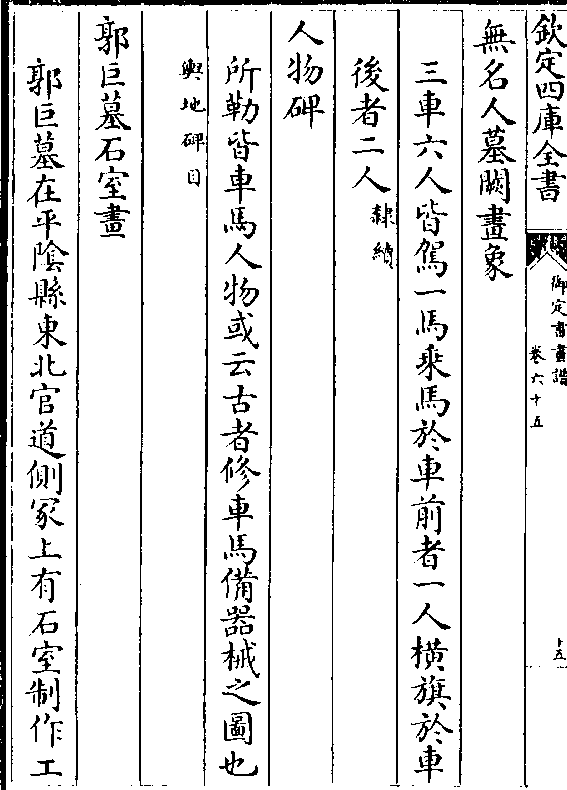 欽定四庫全書
御定書畫譜
卷六十五
十五
無名人墓闕畫象
三車六人皆駕一馬乘馬於車前者一人橫旗於車
後者二人隸續
人物碑
所勒皆車馬人物或云古者修車馬備器械之圖也
輿地碑目
郭巨墓石室畫
郭巨墓在平隂縣東北官道側冢上有石室制作工